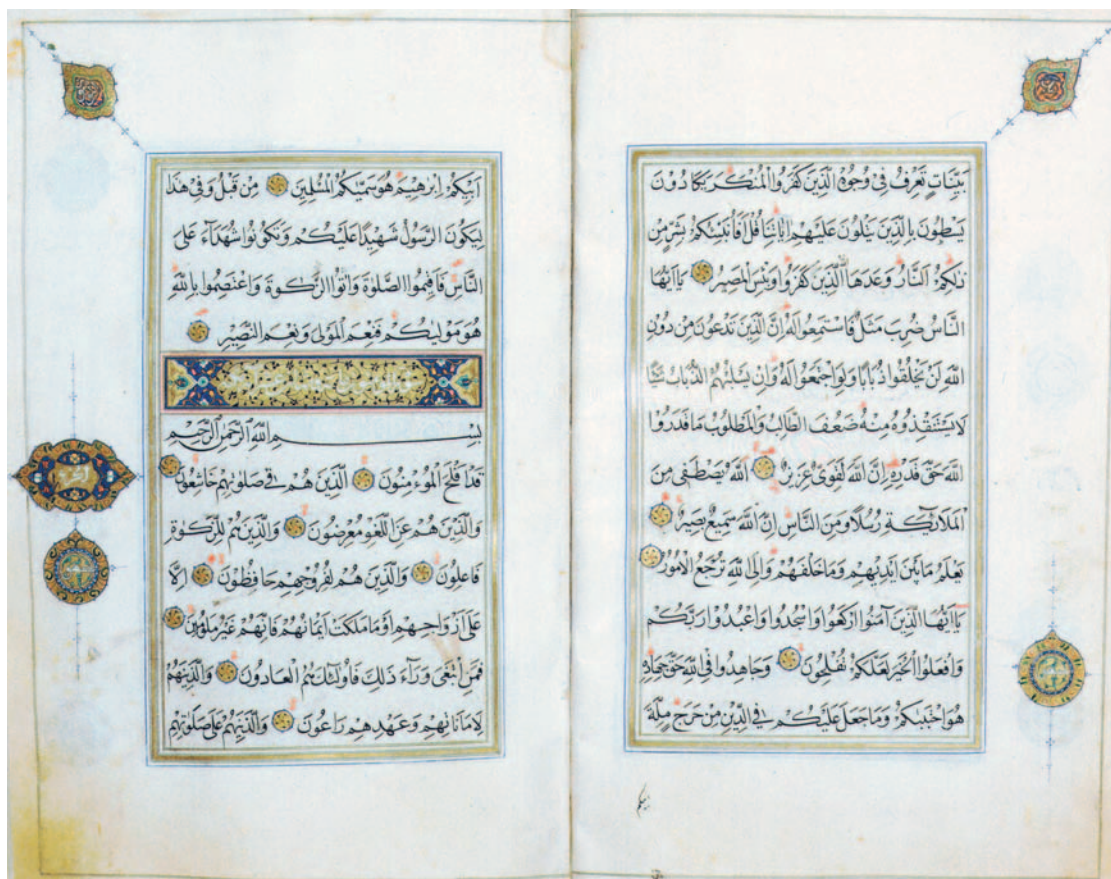 بَيِّنَاتٍ تَعْرِفُ فِي وُجُوهِ الَّذِينَ كَفَرُوا الْمُنْكَرَ يَكَادُونَ
يَسْطُونَ بِالَّذِينَ يَتْلُونَ عَلَيْهِمْ اٰيَاتِنَا قُلْ اَفَاُنَبِّئُكُمْ بِشَرٍّ مِنْ
ذٰلِكُمُ النَّارُ وَعَدَهَا اللّٰهُ الَّذِينَ كَفَرُوا وَبِئْسَ الْمَصِيرُ يَا اَيُّهَا
النَّاسُ ضُرِبَ مَثَلٌ فَاسْتَمِعُوا لَهُ اِنَّ الَّذِينَ تَدْعُونَ مِنْ دُونِ
اللّٰهِ لَنْ يَخْلُقُوا ذُبَابًا وَلَوِ اجْتَمَعُوا لَهُ وَاِنْ يَسْلُبْهُمُ الذُّبَابُ شَيْئًا
لَا يَسْتَنْقِذُوهُ مِنْهُ ضَعُفَ الطَّالِبُ وَالْمَطْلُوبُ مَا قَدَرُوا
اللّٰهَ حَقَّ قَدْرِهِ اِنَّ اللّٰهَ لَقَوِيٌّ عَزِيزٌ اَللّٰهُ يَصْطَفِي مِنَ
الْمَلَائِكَةِ رُسُلًا وَمِنَ النَّاسِ اِنَّ اللّٰهَ سَمِيعٌ بَصِيرٌ
يَعْلَمُ مَا بَيْنَ اَيْدِيهِمْ وَمَا خَلْفَهُمْ وَاِلَى اللّٰهِ تُرْجَعُ الْاُمُورُ
يَا اَيُّهَا الَّذِينَ اٰمَنُوا ارْكَعُوا وَاسْجُدُوا وَاعْبُدُوا رَبَّكُمْ
وَافْعَلُوا الْخَيْرَ لَعَلَّكُمْ تُفْلِحُونَ وَجَاهِدُوا فِي اللّٰهِ حَقَّ جِهَادِهِ
هُوَ اجْتَبٰيكُمْ وَمَا جَعَلَ عَلَيْكُمْ فِي الدِّينِ مِنْ حَرَجٍ مِلَّةَ
ابيكم
اَبِيكُمْ اِبْرٰهِيمَ هُوَ سَمّٰيكُمُ الْمُسْلِمِينَ مِنْ قَبْلُ وَفِي هٰذَا
لِيَكُونَ الرَّسُولُ شَهِيدًا عَلَيْكُمْ وَتَكُونُوا شُهَدَاءَ عَلَى
النَّاسِ فَاَقِيمُوا الصَّلٰوةَ وَاٰتُوا الزَّكٰوةَ وَاعْتَصِمُوا بِاللّٰهِ
هُوَ مَوْلٰيكُمْ فَنِعْمَ الْمَوْلٰى وَنِعْمَ النَّصِيرُ
بِسْمِ اللّٰهِ الرَّحْمٰنِ الرَّحِيمِ
قَدْ اَفْلَحَ الْمُؤْمِنُونَ اَلَّذِينَ هُمْ فِي صَلَاتِهِمْ خَاشِعُونَ
وَالَّذِينَ هُمْ عَنِ اللَّغْوِ مُعْرِضُونَ وَالَّذِينَ هُمْ لِلزَّكٰوةِ
فَاعِلُونَ وَالَّذِينَ هُمْ لِفُرُوجِهِمْ حَافِظُونَ اِلَّا
عَلٰى اَزْوَاجِهِمْ اَوْ مَا مَلَكَتْ اَيْمَانُهُمْ فَاِنَّهُمْ غَيْرُ مَلُومِينَ
فَمَنِ ابْتَغٰى وَرَاءَ ذٰلِكَ فَاُولٰئِكَ هُمُ الْعَادُونَ وَالَّذِينَ هُمْ
لِاَمَانَاتِهِمْ وَعَهْدِهِمْ رَاعُونَ وَالَّذِينَ هُمْ عَلٰى صَلَوَاتِهِمْ